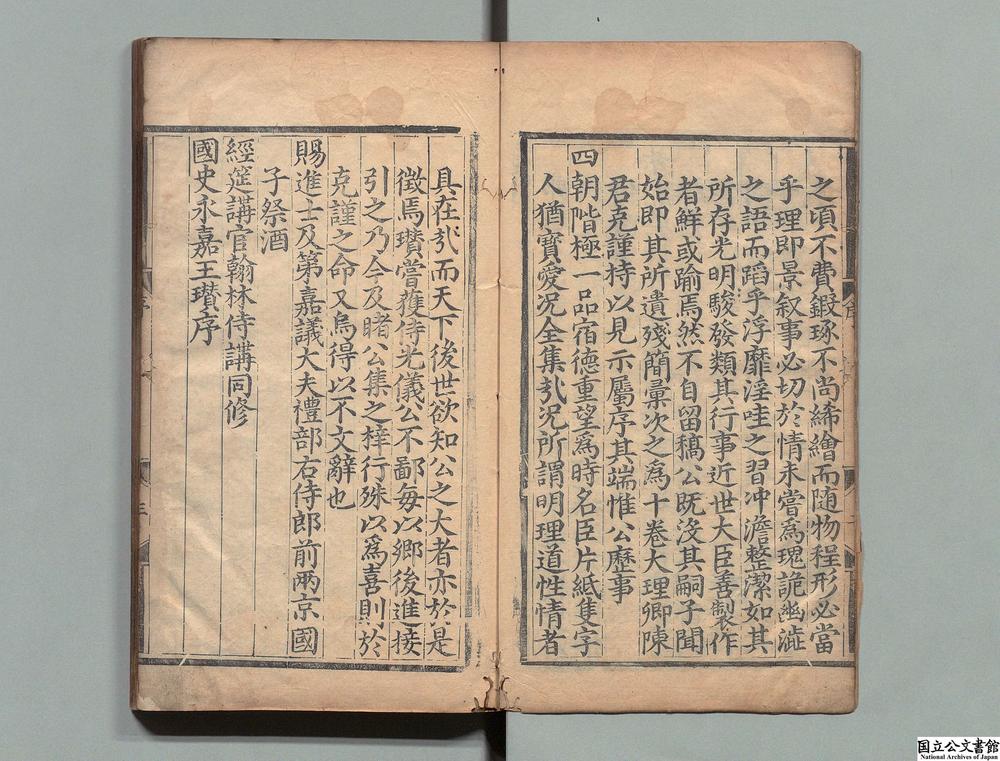 之頃不費鍛琢不尚絺繪而随物程形必當
乎理即景叙事必切於情未嘗爲瑰詭幽澁
之語而蹈乎浮靡淫哇之習冲澹整潔如其
所存光明駿發類其行事近世大臣善製作
者鮮或踰焉然不自留稿公既没其嗣子聞
始即其所遺殘簡彙次之爲十卷大理卿陳
君克謹持以見示屬序其端惟公歷事
四朝階極一品宿德重望爲時名臣片紙隻字
人猶寳愛况全集㢤况所謂明理道性情者
具在㢤而天下後世欲知公之大者亦於是
徵焉瓚嘗獲侍光儀公不鄙每以鄉後進接
引之乃今及睹公集之梓行殊以爲喜則於
克謹之命又烏得以不文辭也
賜進士及第嘉議大夫禮部右侍郎前兩京國
子祭酒
經筵講官翰林侍講同修
國史永嘉王瓚序
国立公文書館
National Archives of Japan